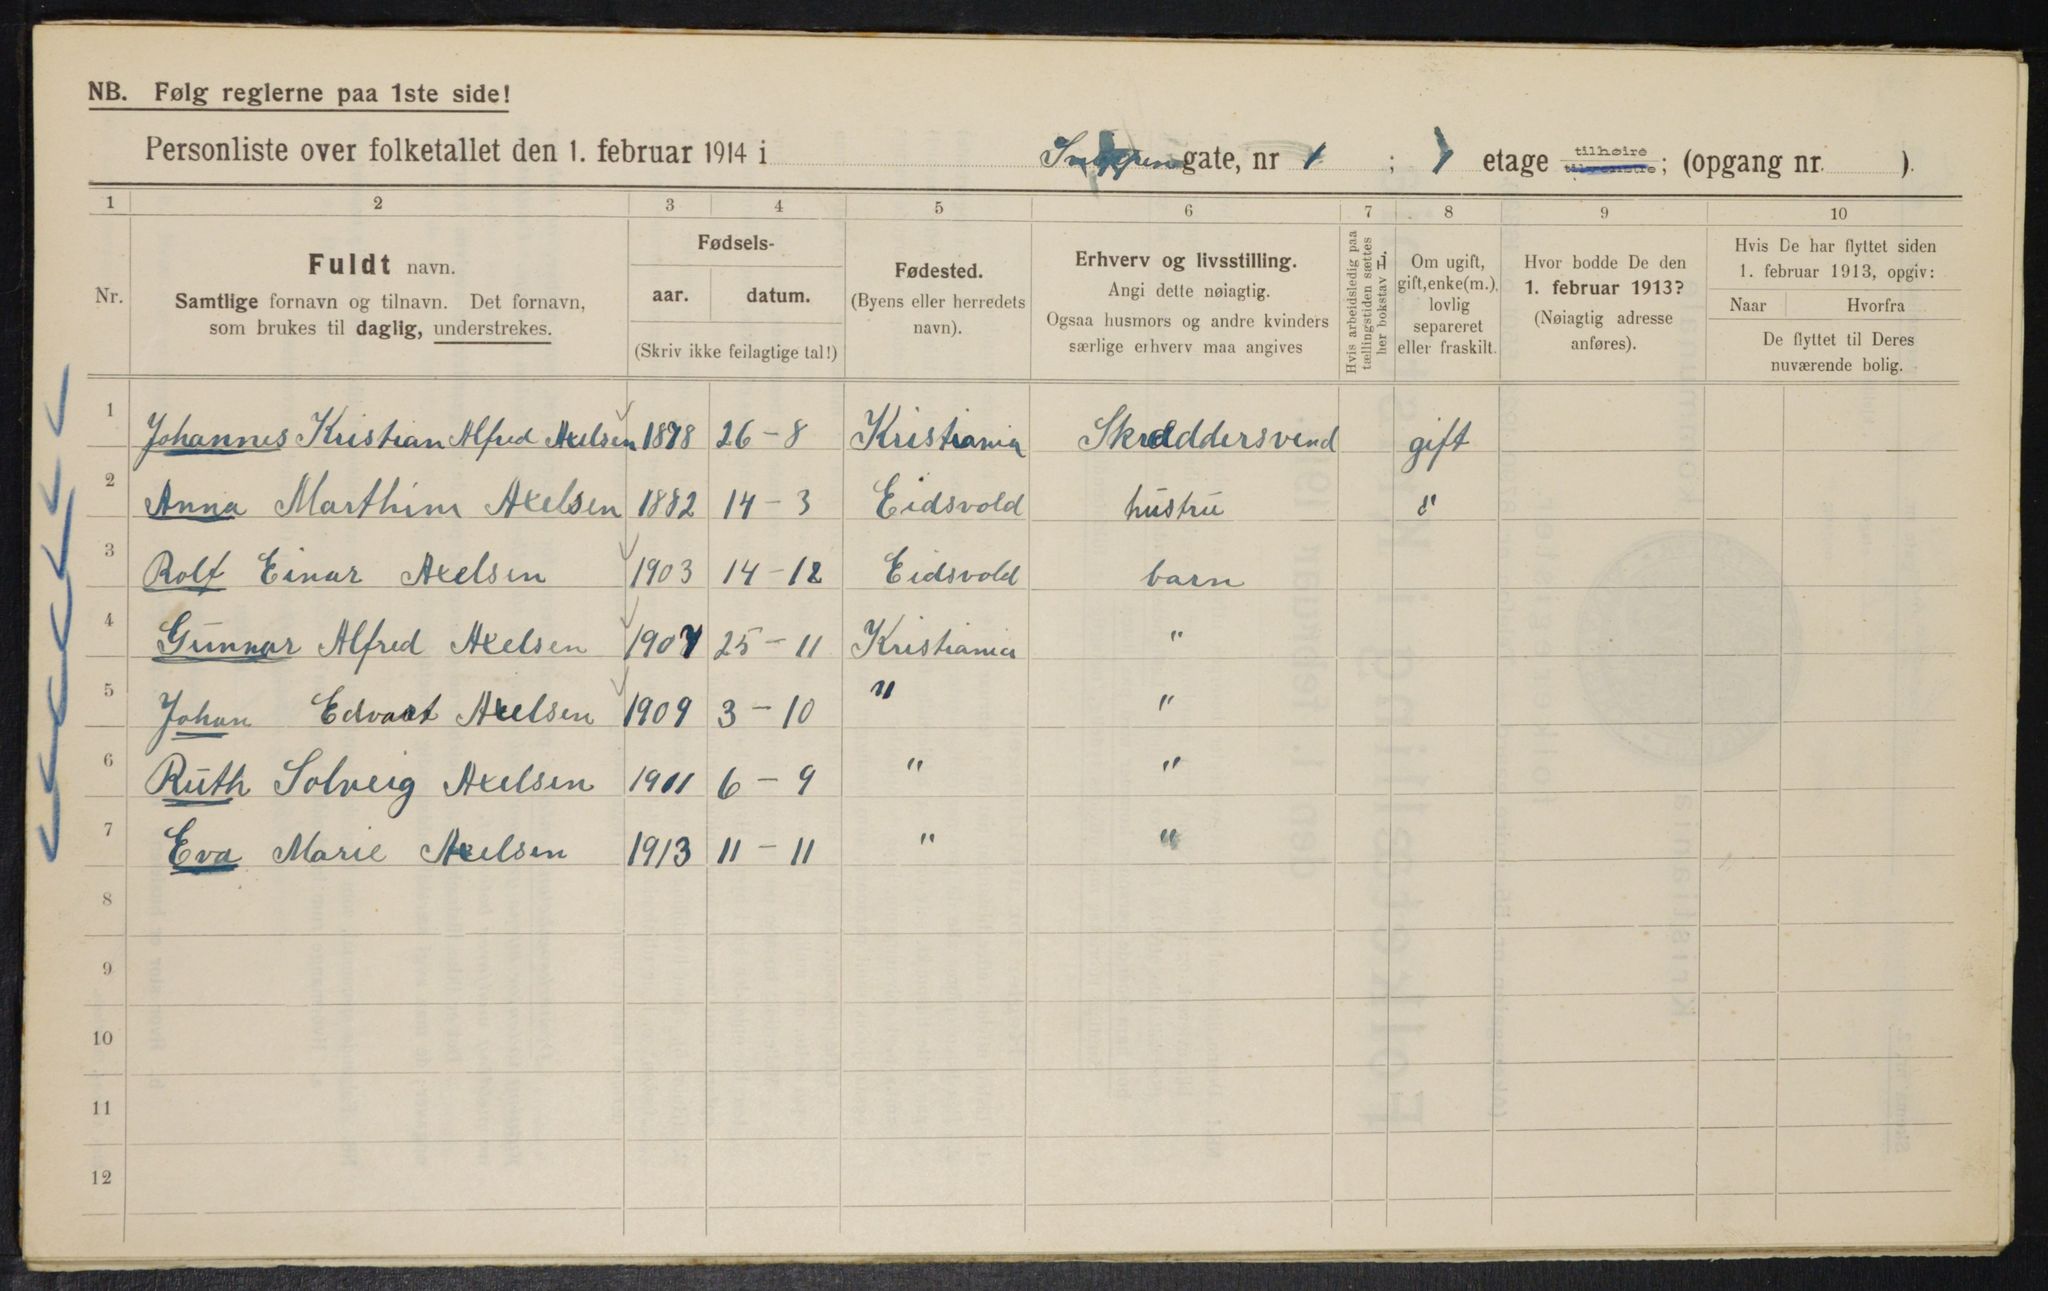 NB. Følg reglerne paa 1ste side!
Personliste over folketallet den 1. februar 1914 i gate, nr 1 ; 1 etage tilhøire tilvenstre; (opgang nr. ).
1 2 3 4 5 6 7 8 9 10
Nr.
Fuldt navn.
Samtlige fornavn og tilnavn. Det fornavn,
som brukes til daglig, understrekes.
Fødsels-
aar. datum.
(Skriv ikke feilagtige tal!)
Fødested.
(Byens eller herredets
navn).
Erhverv og livsstilling.
Angi dette nøiagtig.
Ogsaa husmors og andre kvinders
særlige erhverv maa angives
Hvis arbeidsledig paa
tællingstiden sættes
her bokstav L.
Om ugift,
gift, enke(m.),
lovlig
separeret
eller fraskilt.
Hvor bodde De den
1. februar 1913?
(Nøiagtig adresse
anføres).
Hvis De har flyttet siden
1. februar 1913, opgiv:
Naar Hvorfra
De flyttet til Deres
nuværende bolig.
1 Johannes Kristian Alfred Axelsen 1878 26-8 Kristiania Skræddersvend gift
2 Anna Marthine Axelsen 1882 14-3 Eidsvold hustru "
3 Rolf Einar Axelsen 1903 14-12 Eidsvold barn
4 Gunnar Alfred Axelsen 1907 25-11 Kristiania "
5 Johan Edvart Axelsen 1909 3-10 " "
6 Ruth Solveig Axelsen 1911 6-9 " "
7 Eva Marie Axelsen 1913 11-11 " "
8
9
10
11
12